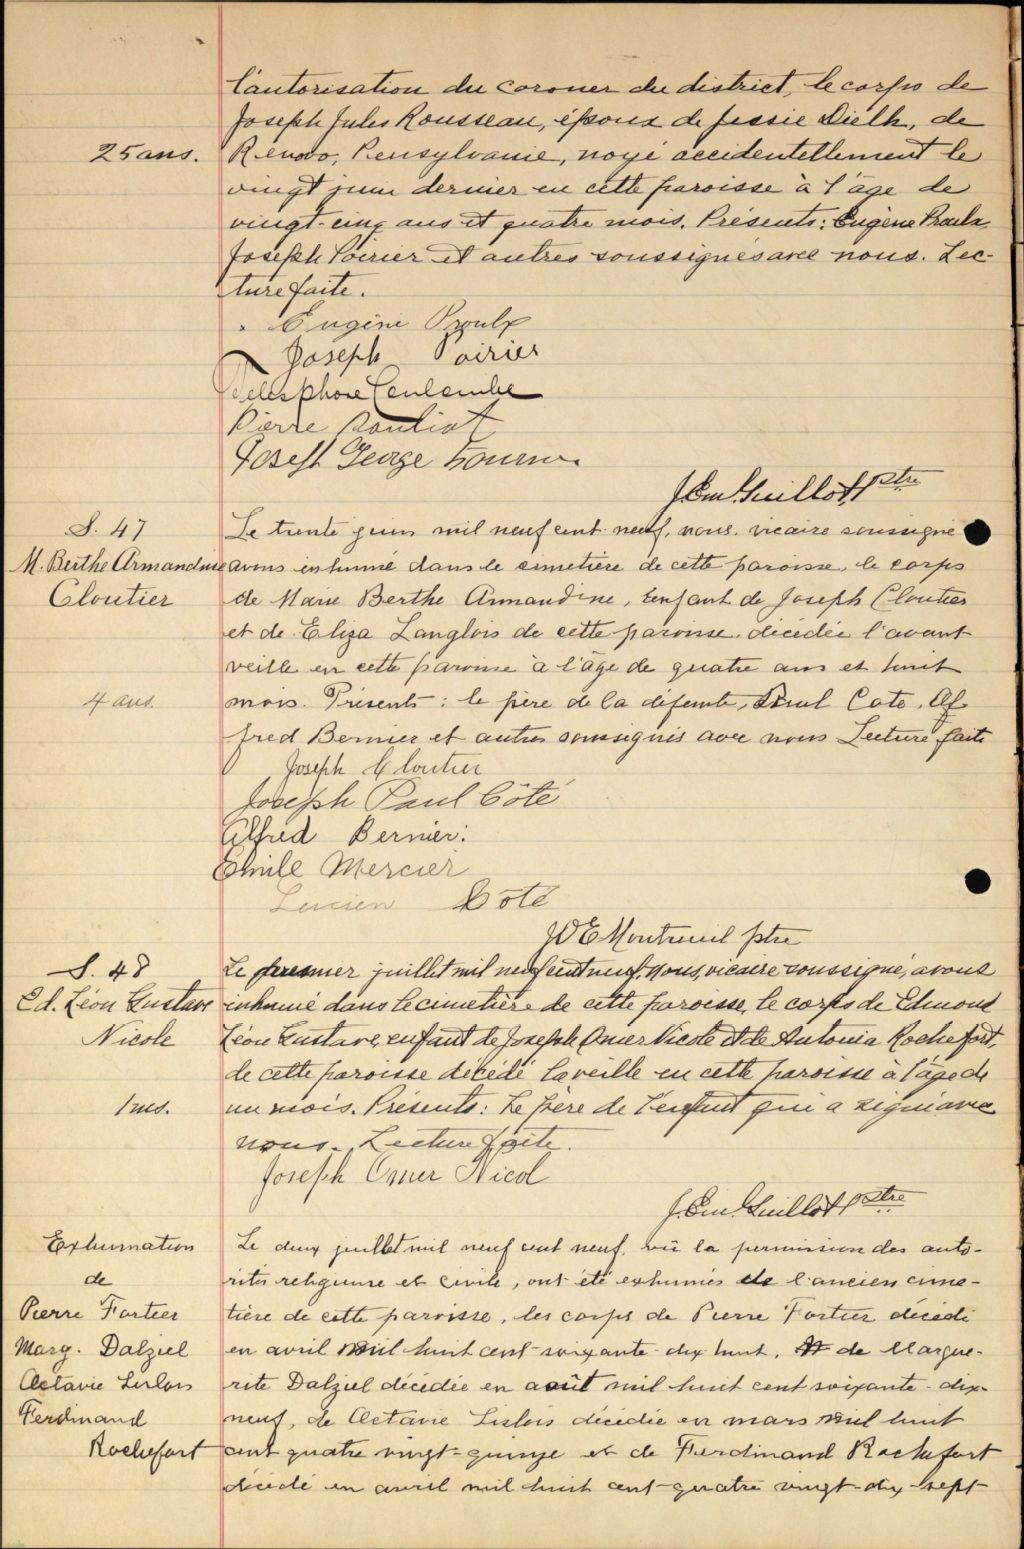 l'autorisation du coroner du district, le corps de
Joseph Jules Rousseau, époux de Jessie Dielh, de
25 ans. Rénovo, Pensylvanie, noyé accidentellement le
vingt juin dernier en cette paroisse à l'âge de
vingt-cinq ans et quatre mois. Présents: Eugène Proulx,
Joseph Poirier et autres soussignés avec nous. Lec-
ture faite.
Eugène Proulx
Joseph Poirier
Télesphore Coulombe
Pierre Pouliot
Joseph George Fournier
J. Em. Guillot, Ptre
S. 47 Le trente juin mil neuf cent neuf, nous, vicaire soussigné
M. Berthe Armandine avons inhumé dans le cimetière de cette paroisse, le corps
Cloutier de Marie Berthe Armandine, enfant de Joseph Cloutier
et de Eliza Langlois de cette paroisse, décédée l'avant
veille en cette paroisse à l'âge de quatre ans et huit
4 ans. mois. Présents: le père de la défunte, Paul Coté, Al-
fred Bernier et autres soussignés avec nous Lecture faite
Joseph Cloutier
Joseph Paul Côté
Alfred Bernier.
Emile Mercier
Lucien Côté
J D E Montreuil ptre
S. 48 Le premier juillet mil neuf cent neuf, nous, vicaire soussigné, avons
Ed. Léon Gustave inhumé dans le cimetière de cette paroisse, le corps de Edmond
Nicole Léon Gustave, enfant de Joseph Omer Nicole et de Antonia Rochefort,
de cette paroisse décédé la veille en cette paroisse à l'âge de
1 ms. un mois. Présents: Le père de l'enfant qui a signé avec
nous. Lecture faite.
Joseph Omer Nicol
J. Em. Guillot Ptre
Exhumation Le deux juillet mil neuf cent neuf, vu la permission des auto-
de rités religieuse et civile, ont été exhumés de l'ancien cime-
Pierre Fortier tière de cette paroisse, les corps de Pierre Fortier décédé
Marg. Dalziel en avril mil huit cent soixante-dix huit, de Margue-
Octavie Lislois rite Dalziel décédée en août mil huit cent soixante-dix-
Ferdinand neuf, de Octavie Lislois décédée en mars mil huit
Rochefort cent quatre vingt-quinze et de Ferdinand Rochefort
décédé en avril mil huit cent-quatre vingt-dix-sept